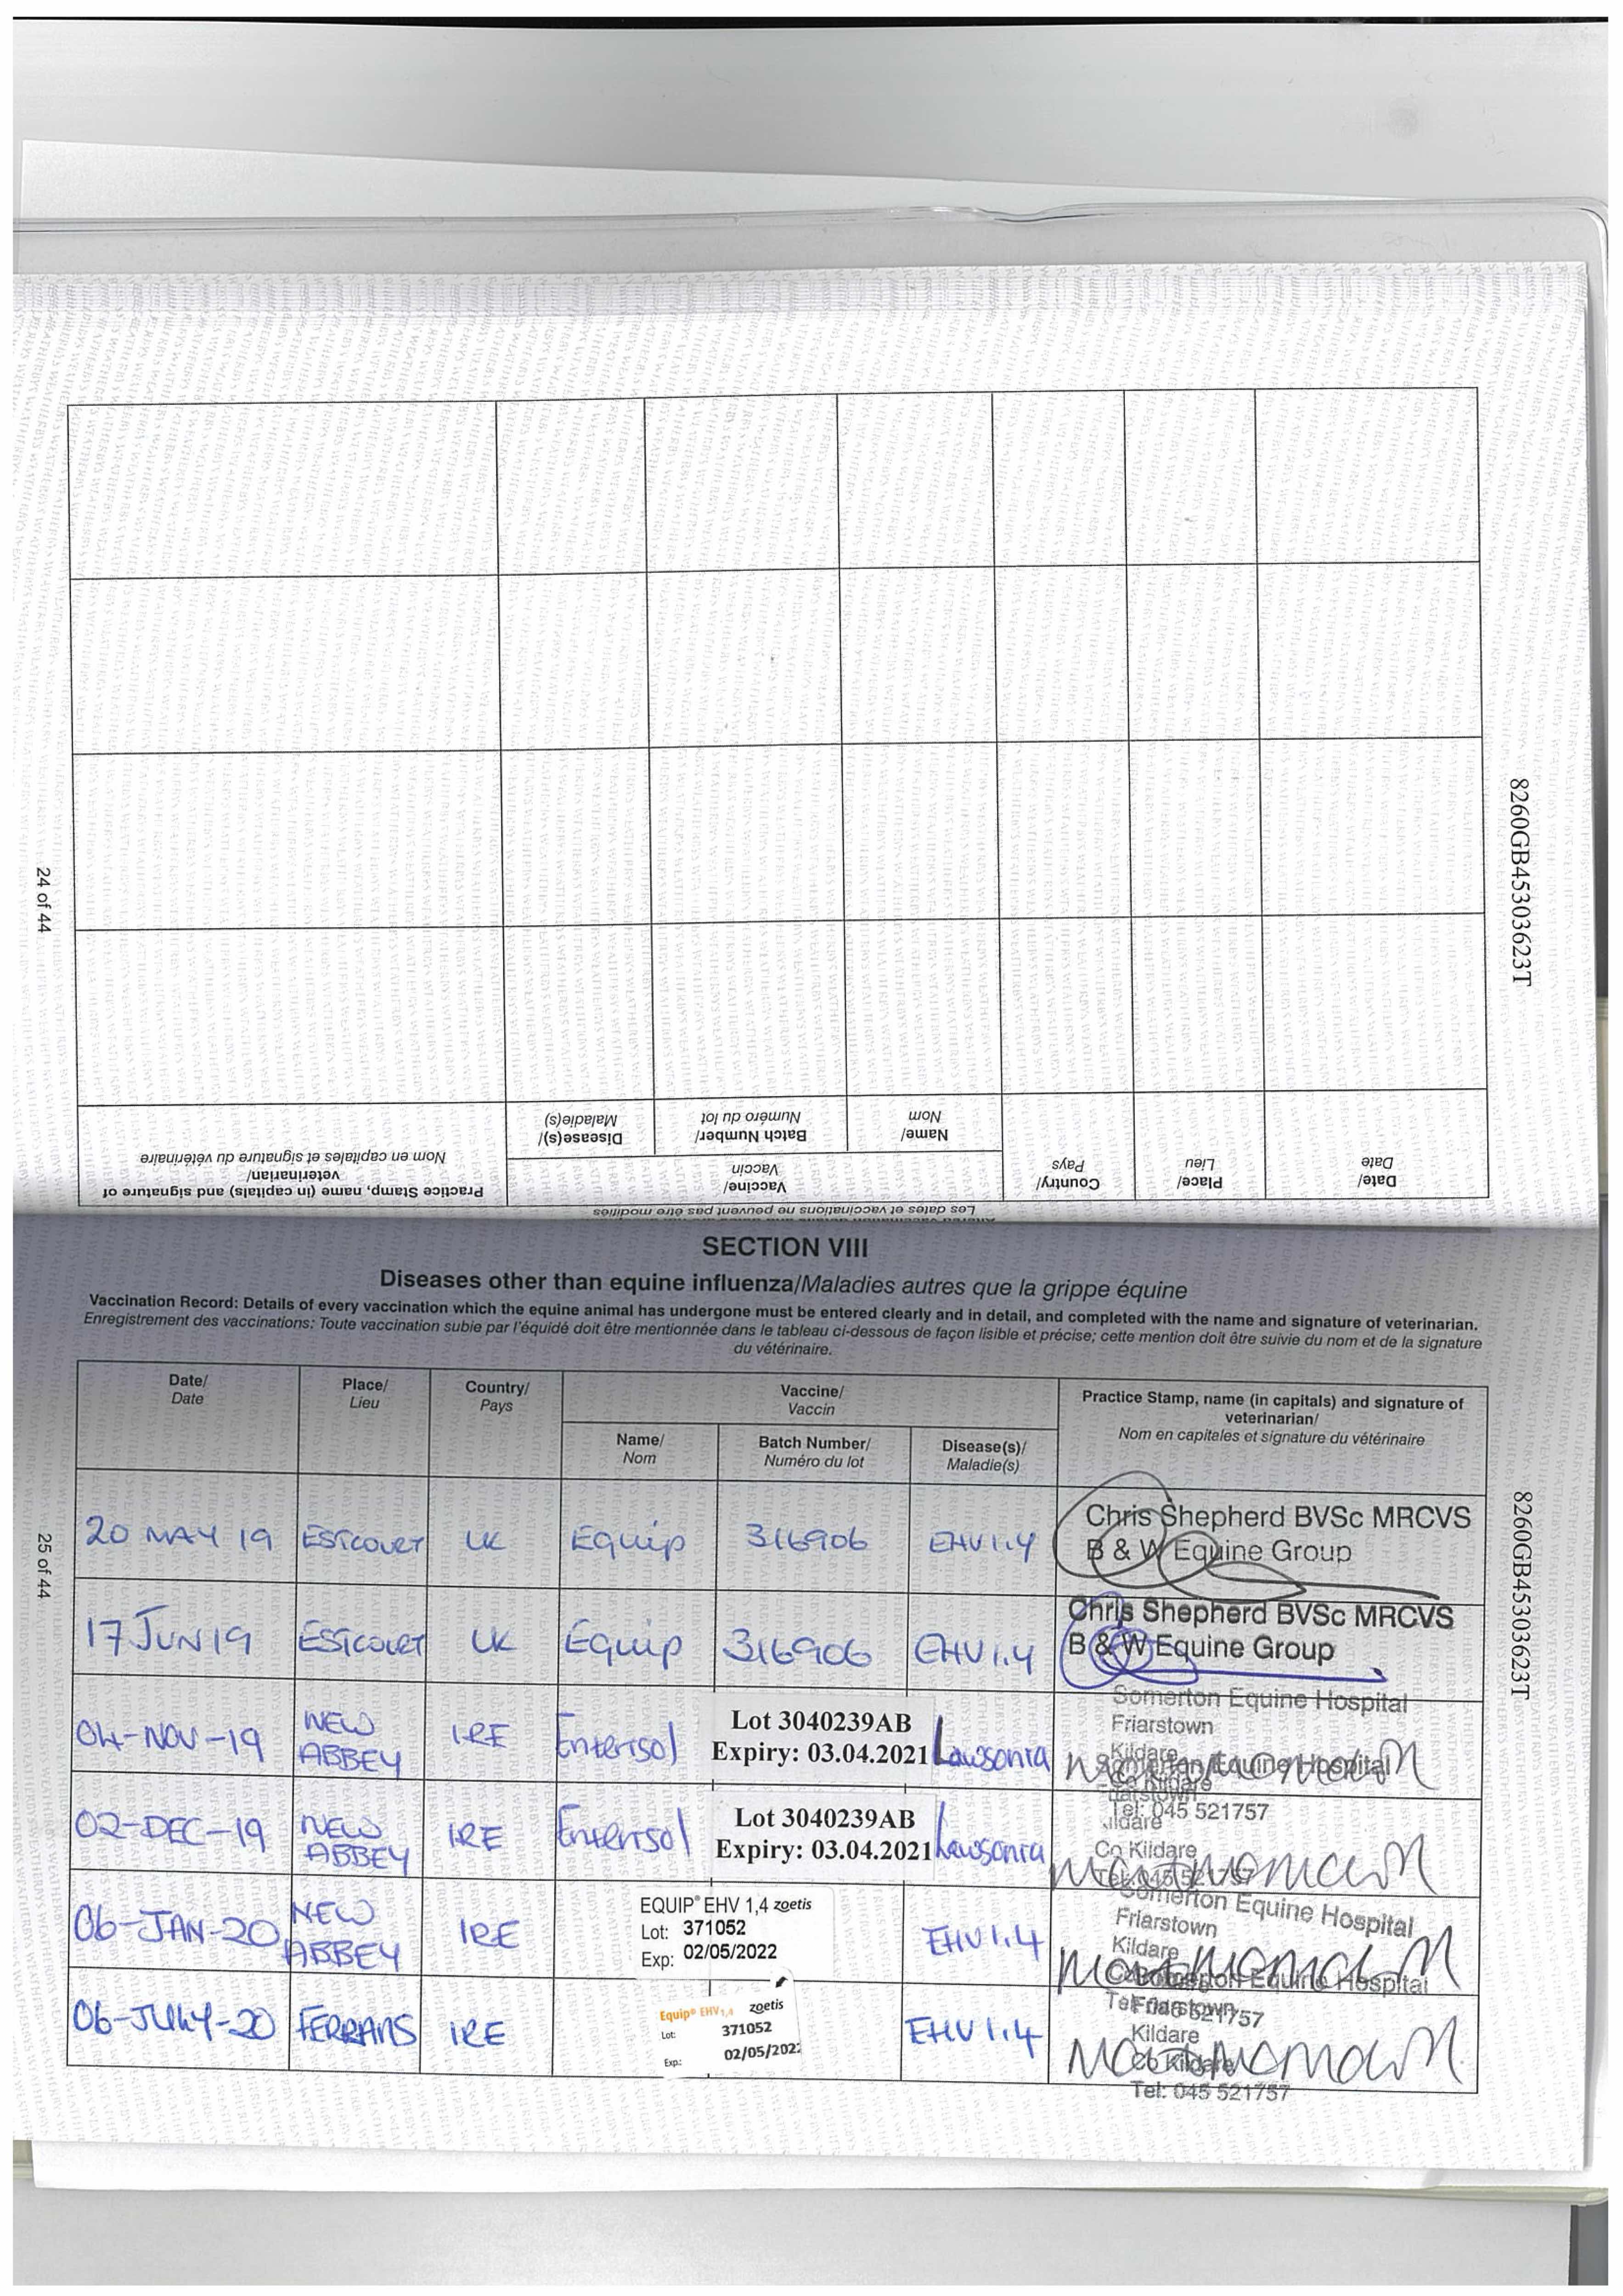 8260GB45303623T
24 of 44
Les dates et vaccinations ne peuvent pas être modifiés
Date/
Date
Place/
Lieu
Country/
Pays
Vaccine/
Vaccin
Name/
Nom
Batch Number/
Numéro du lot
Disease(s)/
Maladie(s)
Practice Stamp, name (in capitals) and signature of
veterinarian/
Nom en capitales et signature du vétérinaire
SECTION VIII
Diseases other than equine influenza/Maladies autres que la grippe équine
Vaccination Record: Details of every vaccination which the equine animal has undergone must be entered clearly and in detail, and completed with the name and signature of veterinarian.
Enregistrement des vaccinations: Toute vaccination subie par l'équidé doit être mentionnée dans le tableau ci-dessous de façon lisible et précise; cette mention doit être suivie du nom et de la signature
du vétérinaire.
Date/
Date
Place/
Lieu
Country/
Pays
Vaccine/
Vaccin
Name/
Nom
Batch Number/
Numéro du lot
Disease(s)/
Maladie(s)
Practice Stamp, name (in capitals) and signature of
veterinarian/
Nom en capitales et signature du vétérinaire
20 MAY 19 ESTCOURT UK Equip 316906 EHV 1.4
Chris Shepherd BVSc MRCVS
B & W Equine Group
17 JUN 19 ESTCOURT UK Equip 316906 EHV 1.4
Chris Shepherd BVSc MRCVS
B & W Equine Group
04-NOV-19 NEW
ABBEY IRE Enterisol
Lot 3040239AB
Expiry: 03.04.2021
Lawsonia
Somerton Equine Hospital
Friarstown
Kildare
Co Kildare
Tel: 045 521757
02-DEC-19 NEW
ABBEY IRE Enterisol
Lot 3040239AB
Expiry: 03.04.2021
Lawsonia
Somerton Equine Hospital
Kildare
Co Kildare
Tel: 045 521757
06-JAN-20 NEW
ABBEY IRE
EQUIP® EHV 1,4 zoetis
Lot: 371052
Exp: 02/05/2022
EHV 1.4
Somerton Equine Hospital
Friarstown
Kildare
Tel: 045 521757
06-JULY-20 FERRANS IRE
Equip® EHV1,4 zoetis
Lot: 371052
Exp.: 02/05/202
EHV 1.4
Somerton Equine Hospital
Friarstown
Kildare
Co Kildare
Tel: 045 521757
25 of 44
8260GB45303623T